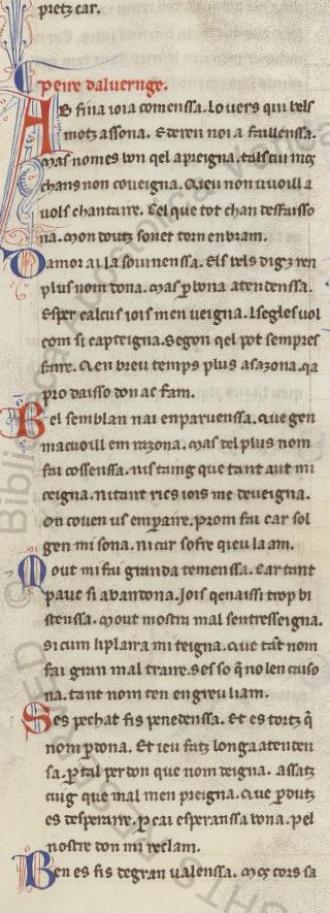 pretz car.
Peire daluernge.
AB fina ioia comenssa. Lo uers qui bels
motz assona. E deren noi a faillenssa.
Mas nomes bon qel apreigna. tals cui mos
chans non coueigna. Qieu non uuoill a
uols chantaire. Cel que tot chan desfaisso
na. Mon doutz sonet torn en bram.
Damor ai la souinenssa. Els bels digz ren
plus nom dona. Mas p bona atendenssa.
Esper calcus iois men ueigna. Lsegles uol
com si capteigna. Segon qel pot sempres
faire. Qen breu temps plus asazona. qa
pro daisso don ac fam.
Bel semblan nai en paruenssa. Que gen
macuoill em razona. Mas del plus nom
fai cossenssa. nis taing que tant aut mi
ceigna. ni tant rics iois me deueigna.
On couen us empaire. prom fai car sol
gen mi sona. ni car sofre qieu la am.
Mout mi fai granda temenssa. Car tant
pauc si abandona. Jois qenaissi trop bi
stenssa. Mout mostra mal sentresseigna.
Si cum liplaira mi teigna. que tāt nom
fai gran mal traire. Ses so q̄ no len ocaiso
na. tant nom ten en greu liam.
Ses pechat fis penedenssa. Et es tortz q̄
nom pdona. Et ieu fatz longa aten den
sa. p tal perdon que nom deigna. assatz
cuig que mal men preigna. Que pdutz
es desperaire. p cai esperanssa bona. pel
nostre don mi reclam.
Ben es fis de gran ualenssa. Mos cors sa
© Biblioteca Apostolica Vaticana